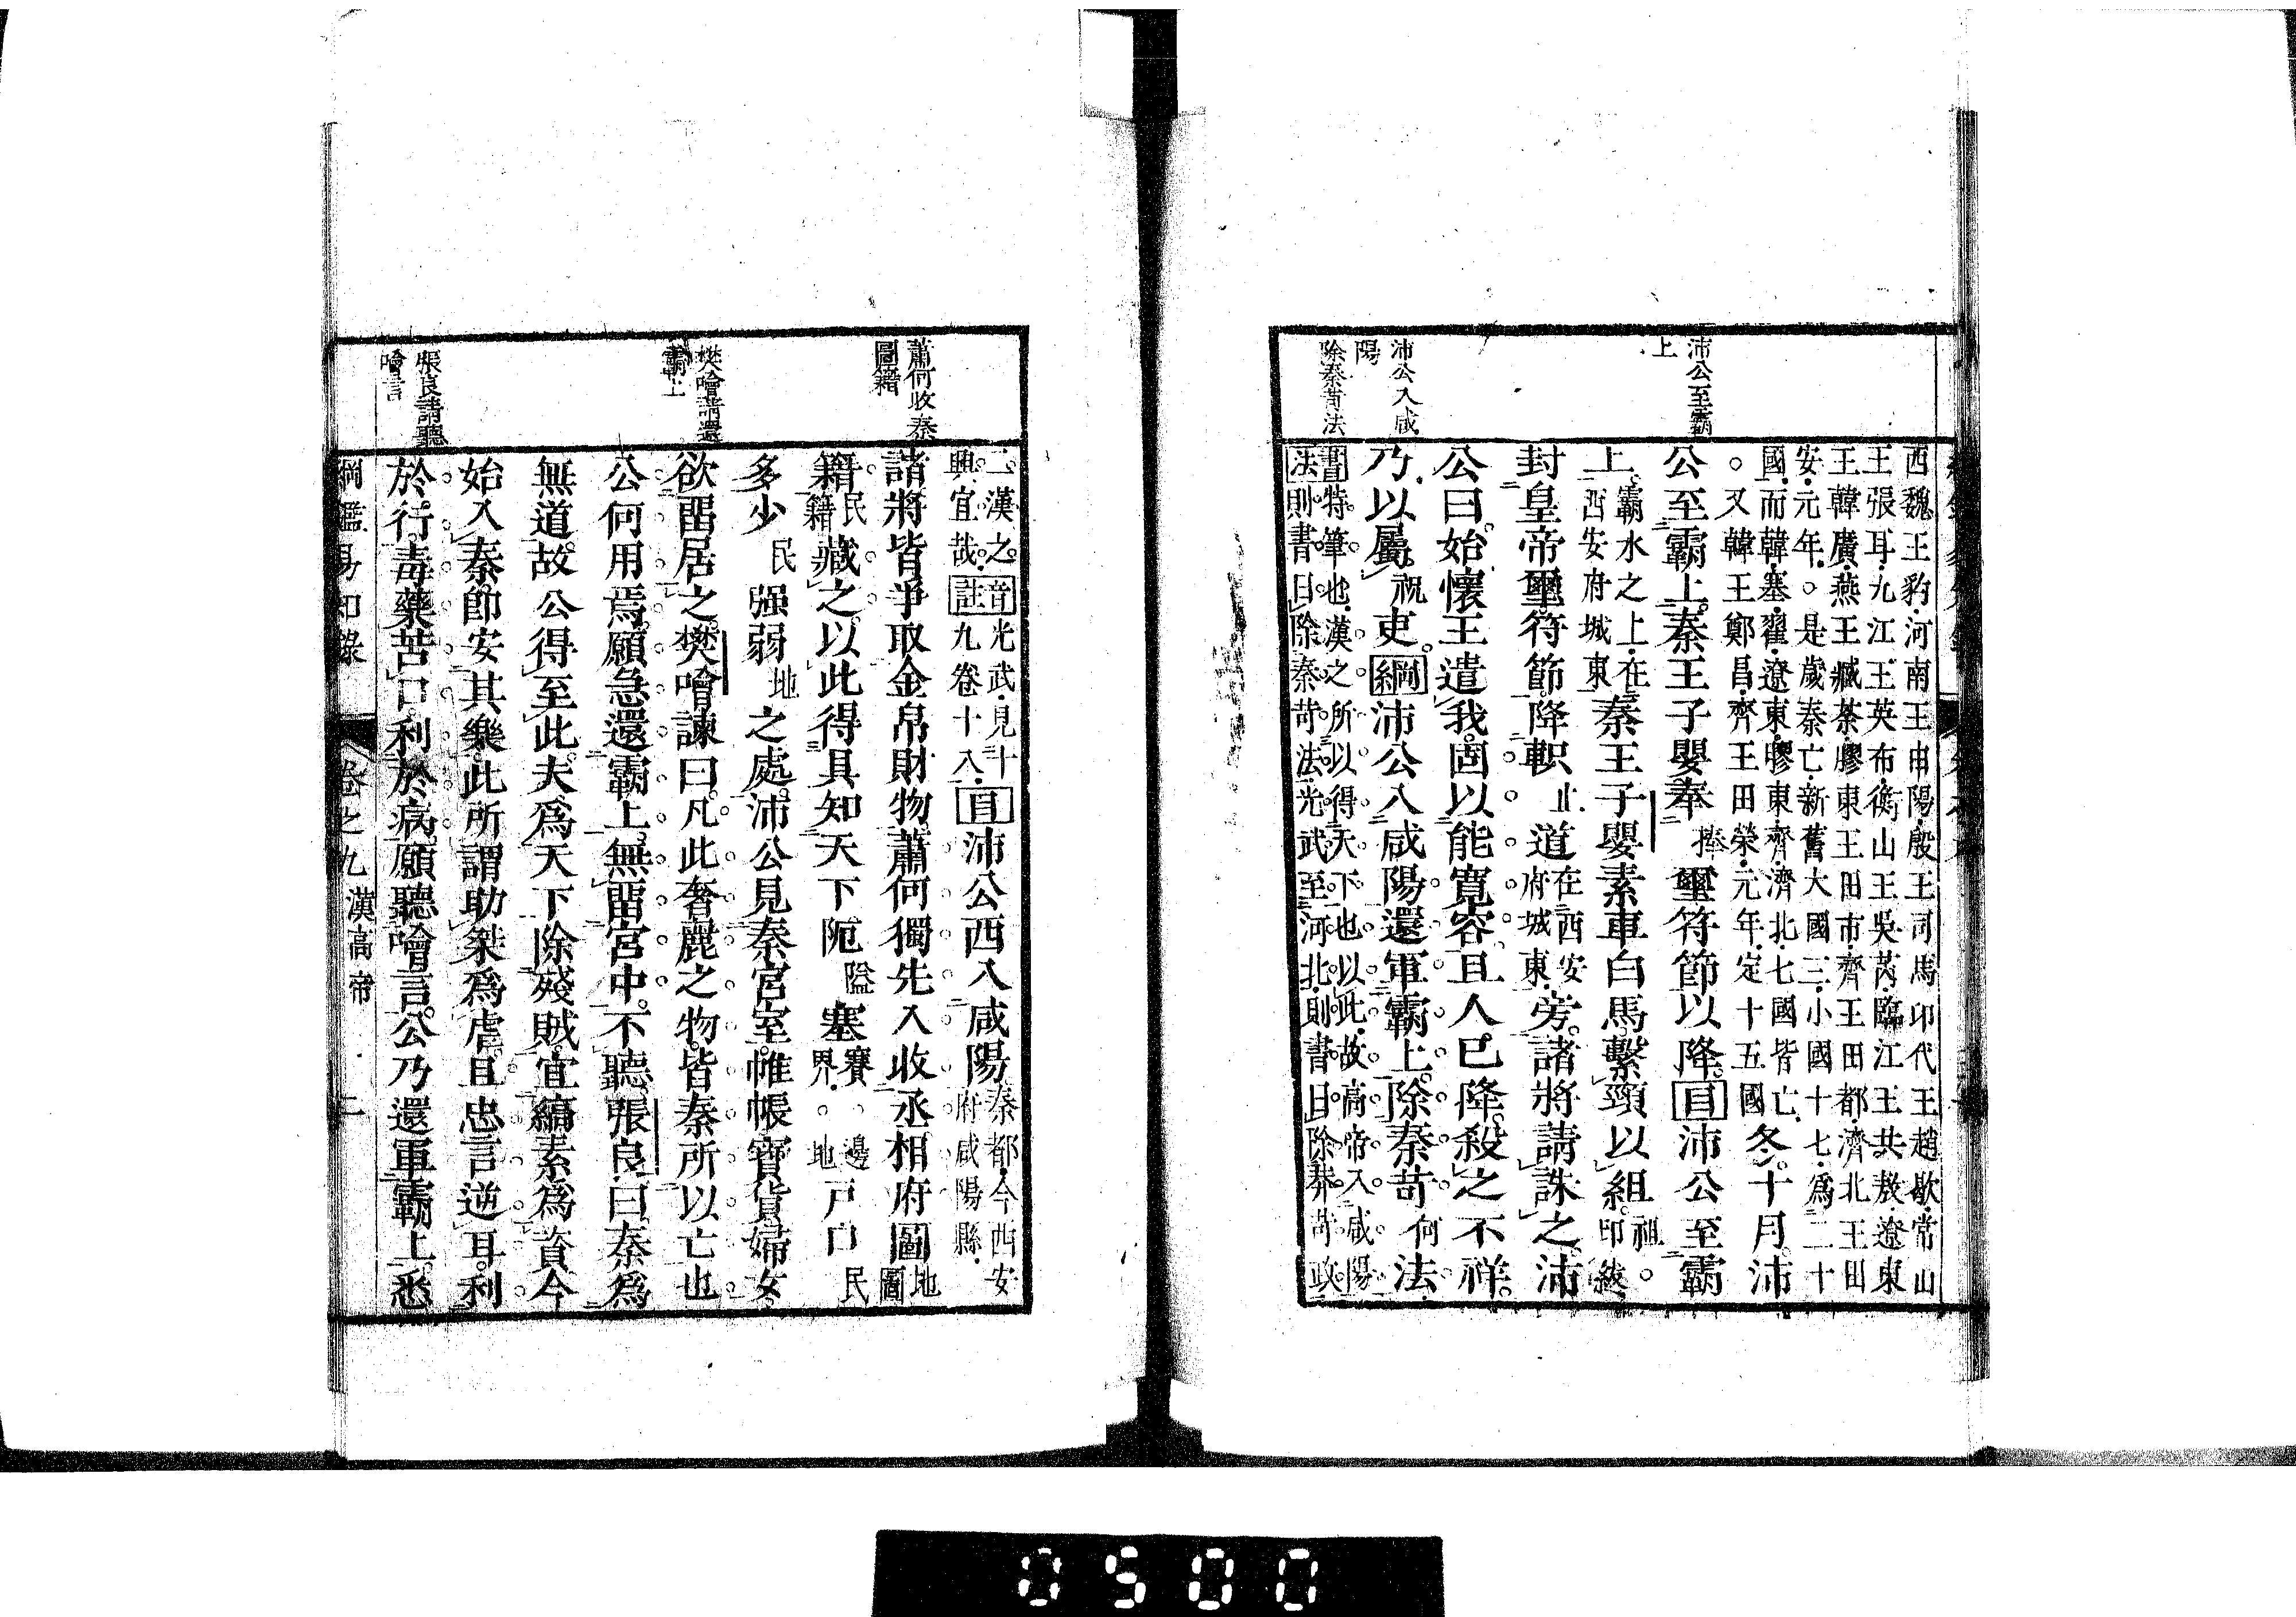 沛公至霸
上
沛公入咸
陽
除秦苛法
西魏王豹河南王申陽殷王司馬卬代王趙歇常山
王張耳九江王英布衡山王吳芮臨江王共敖遼東
王韓廣燕王臧荼膠東王田市齊王田都濟北王田
安元年○是歲秦亡新舊大國三小國十七爲二十
國而韓塞翟遼東膠東齊濟北七國皆亡
○又韓王鄭昌齊王田榮元年定十五國
冬十月沛
公至霸上秦王子嬰奉捧璽符節以降目沛公至霸
上霸水之上在
西安府城東
秦王子嬰素車白馬繫頸以組祖○
印綬
封皇帝璽符節降軹止道在西安
府城東
旁諸將請誅之沛
公曰始懷王遣我固以能寬容且人已降殺之不祥
乃以屬祝吏綱沛公入咸陽還軍霸上除秦苛何法
書特筆也漢之所以得天下也以此故高帝入咸陽
法則書曰除秦苛法光武至河北則書曰除莽苛政
蕭何收秦
圖籍
樊噲請還
霸上
張良請聽
噲言
二漢之
興宜哉
音光武見十
註九卷十入
目沛公西入咸陽秦都今西安
府咸陽縣
諸將皆爭取金帛財物蕭何獨先入收丞相府圖地
圖
籍民
籍
藏之以此得具知天下阨隘塞賽○邊
界○地
戸口民
多少民强弱地之處沛公見秦宮室帷帳寶貨婦女
欲畱居之樊噲諫曰凡此奢麗之物皆秦所以亡也
公何用焉願急還霸上無畱宮中不聽張良曰秦爲
無道故公得至此夫爲天下除殘賊宜縞素爲資今
始入秦卽安其樂此所謂助桀爲虐且忠言逆耳利
於行毒藥苦口利於病願聽噲言公乃還軍霸上悉
綱鑑易知錄
卷之九 漢高帝 二
0500